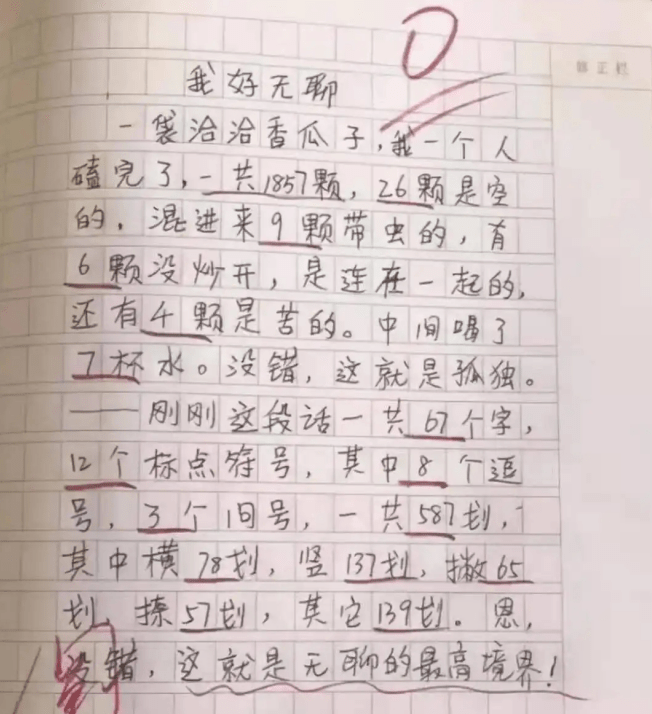 修正栏
我好无聊
一袋洽洽香瓜子,我一个人
磕完了,一共1857颗,26颗是空
的,混进来9颗带虫的,有
6颗没炒开,是连在一起的,
还有4颗是苦的。中间喝了
7杯水。没错,这就是孤独。
——刚刚这段话一共67个字,
12个标点符号,其中8个逗
号,3个旧号,一共587划,
其中横78划,竖137划,撇65
划 捺57划,其它139划。恩,
没错,这就是无聊的最高境界!